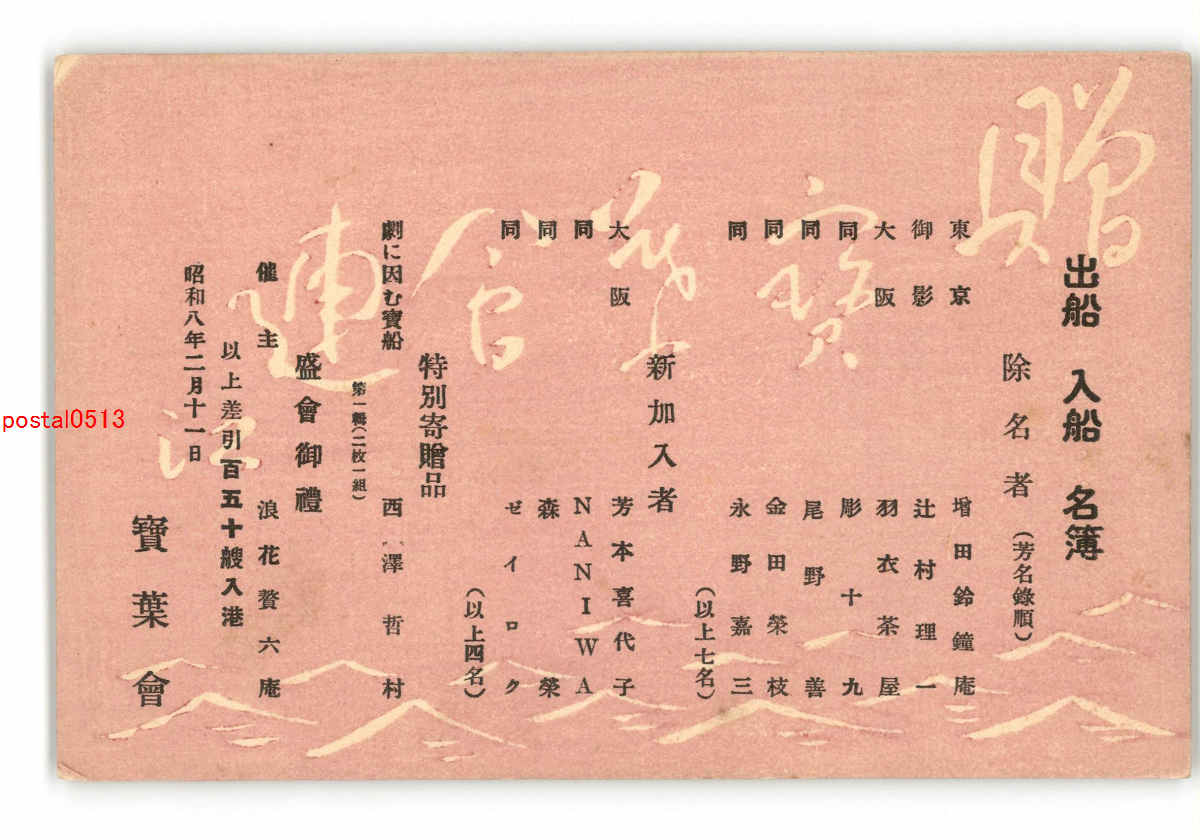 出船 入船 名簿
除名者(芳名錄順)
東京 增田鈴鐘庵
御影 辻村理一
大阪 羽衣茶屋
同 彫十九
同 尾野善
同 金田榮枝
同 永野嘉三
(以上七名)
新加入者
大阪 芳本喜代子
同 NANIWA
同 森榮
同 ゼイロク
(以上四名)
特別寄贈品
劇に因む寶船 第一輯(二枚一組) 西澤哲村
盛會御禮
催主 浪花贅六庵
以上差引百五十艘入港
昭和八年二月十一日
寶葉會
贈
寶
會
連
postal0513